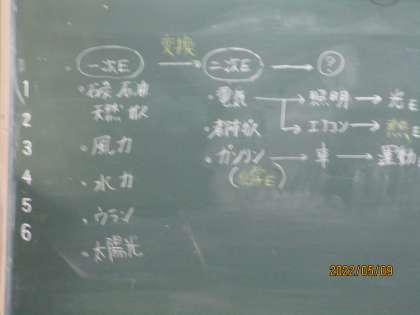 一次E 変換 → 二次E → ?
1 ・石炭 石油
天然ガス
2
3 ・風力
4 ・水力
5 ・ウラン
6 ・太陽光
・電気 → 照明 → 光E
→ エアコン → 熱E
・都市ガス
・ガソリン → 車 → 運動
2022/05/09